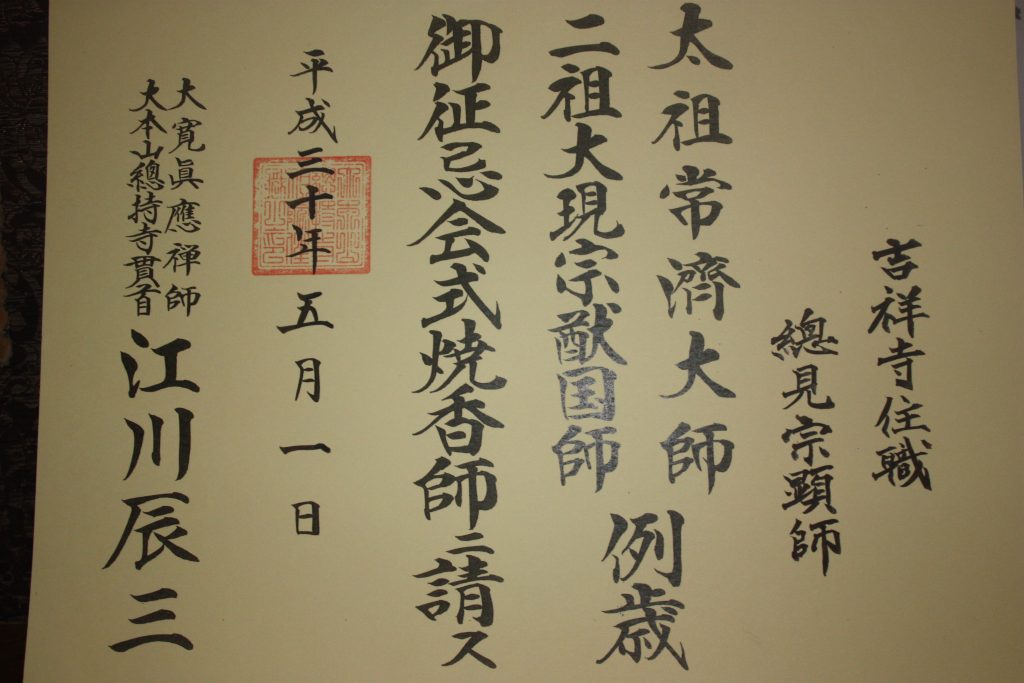 吉祥寺住職
總見宗顕師
太祖常濟大師
二祖大現宗猷国師
例歳
御征忌会式焼香師ニ請ス
平成三十年五月一日
大寛眞應禅師
大本山總持寺貫首
江川辰三